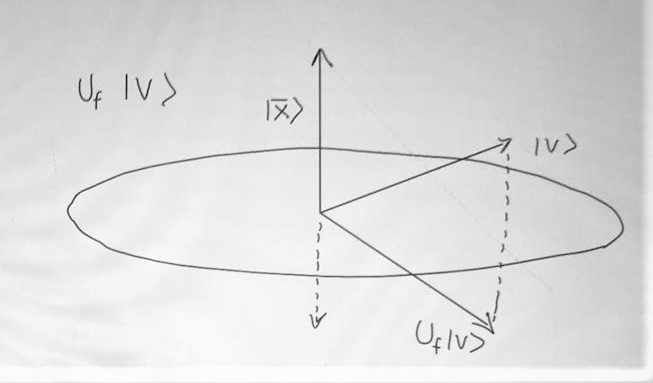 U_f |V⟩
|x̄⟩
|v⟩
U_f|v⟩